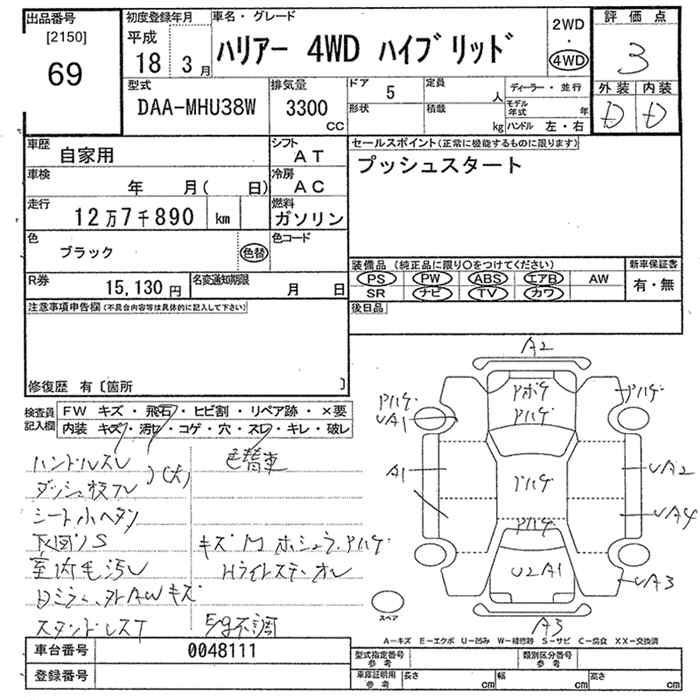 出品番号
[2150]
69
初度登録年月
平成
18 3月
車名・グレード
ハリアー 4WD ハイブリッド
2WD
・
4WD
評価点
3
外装 内装
D D
型式
DAA-MHU38W
排気量
3300
CC
ドア 5
形状
定員 人
積載 kg
ディーラー・並行
モデル年式 年
ハンドル 左・右
車歴 自家用
シフト
AT
車検 年 月( 日)
冷房
AC
走行 12万7千890 km
燃料
ガソリン
色 ブラック 色替
色コード
R券 15,130円
名変通知期限 月 日
セールスポイント(正常に機能するものに限ります)
プッシュスタート
装備品 (純正品に限り○をつけてください)
PS PW ABS エアB AW
SR ナビ TV カワ
新車保証書
有・無
後日品
注意事項申告欄(不具合内容等は具体的に記入して下さい)
修復歴 有〔箇所 〕
検査員記入欄
FW キズ・飛石・ヒビ割・リペア跡・×要
内装 キズ・汚レ・コゲ・穴・スレ・キレ・破レ
ハンドルスレ
(大)
色替車
シート小ヘタリ
室内毛汚レ
キズ
スペア
A2
Aハゲ
UA1
A1
UA2
UA4
UA3
U2A1
A3
A-キズ E-エクボ U-凹み W-補修跡 S-サビ C-腐食 XX-交換済
車台番号 0048111
登録番号
型式指定番号
参考
類別区分番号
参考
車庫証明用
参考
長さ cm
幅 cm
高さ cm